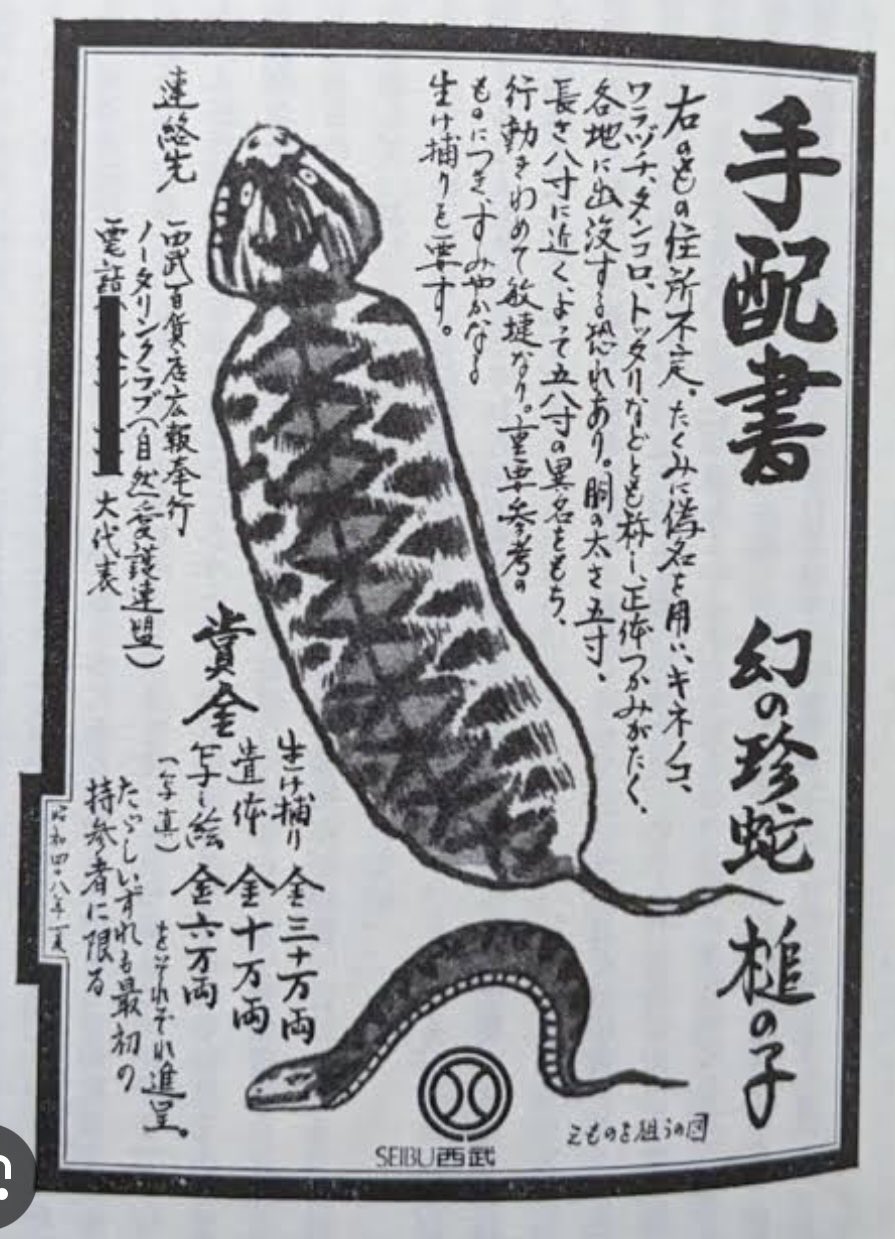 手配書
幻の珍蛇 槌の子
右のもの住所不定、たくみに偽名を用い、キネノコ、
ワラヅチ、タンコロ、トッタリなどとも称し、正体つかみがたく、
各地に出没する恐れあり。胴の太さ五寸、
長さ八寸に近く、よって五八寸の異名をもち、
行動きわめて敏捷なり。重要参考の
ものにつき、すみやかなる
生け捕りを要す。
連絡先
西武百貨店広報奉行
ノータリンクラブ(自然愛護連盟)
電話
大代表
賞金
生け捕り 金三十万両
遺体 金十万両
写し絵 金六万両
(写真) をそれぞれ進呈。
ただしいずれも最初の
持参者に限る
昭和四十八年
えものを狙うの図
SEIBU西武